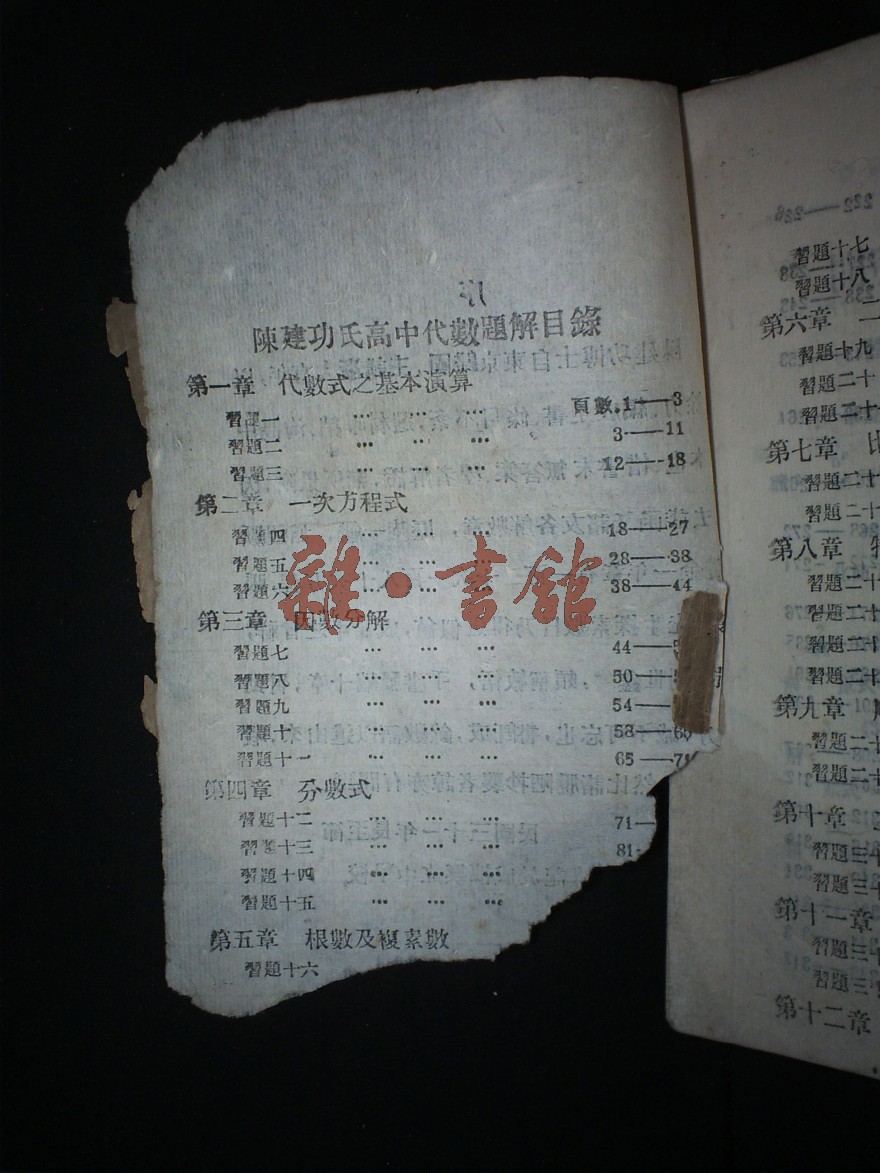 陳建功氏高中代數題解目錄
第一章 代數式之基本演算
習題一 … … … 頁數.1——3
習題二 … … … 3——11
習題三 … … … 12——18
第二章 一次方程式
習題四 … … … 18——27
習題五 … … … 28——38
習題六 … … … 38——44
第三章 因數分解
習題七 … … … 44——5
習題八 … … … 50——
習題九 … … … 54——
習題十 … … … 58——65
習題十一 … … … 65——71
第四章 分數式
習題十二 … … … 71—
習題十三 … … … 81-
習題十四 … … …
習題十五 … … …
第五章 根數及複素數
習題十六
雜·書館
習題十七
習題十八
第六章 二
習題十九
習題二十
習題二十
第七章 比
習題二十
習題二十
第八章
習題二十
習題二十
習題二十
習題二十
第九章
習題二十
習題二十
第十章
習題三十
習題三十
第十一章
習題三十
習題三
第十二章